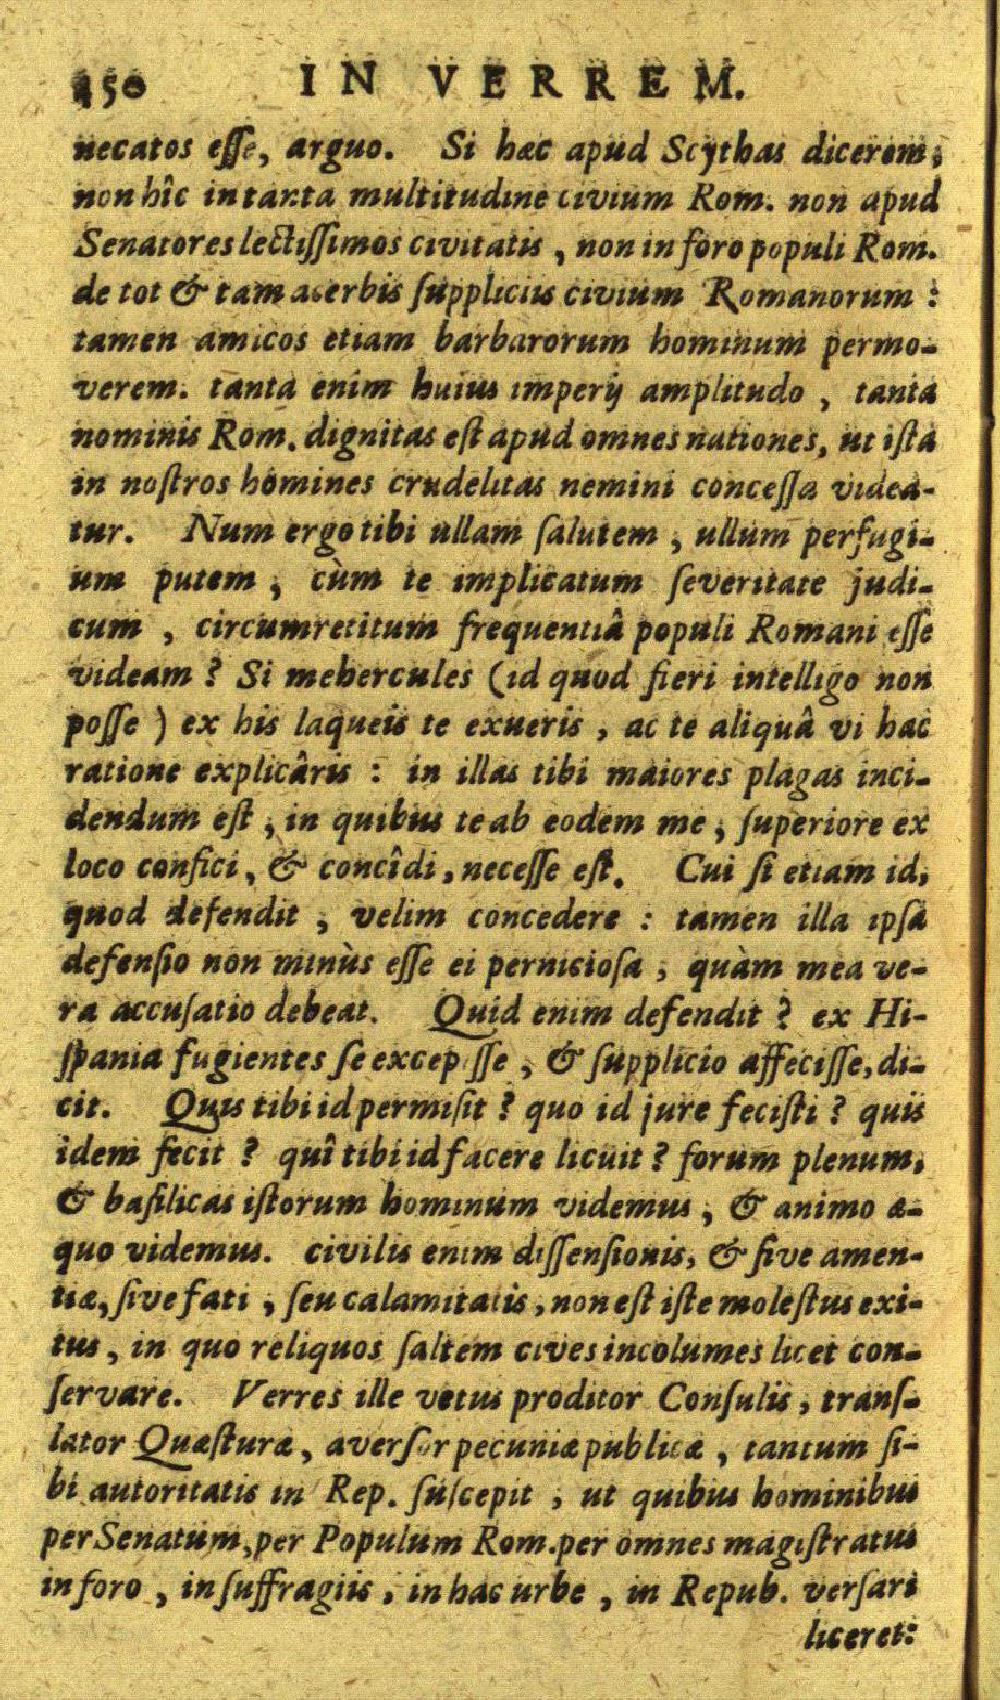 450 IN VERREM.
necatos esse, arguo. Si hæc apud Scythas dicerem;
non hîc in tanta multitudine civium Rom. non apud
Senatores lectissimos civitatis, non in foro populi Rom.
de tot & tam acerbis suppliciis civium Romanorum:
tamen amicos etiam barbarorum hominum permo-
verem. tanta enim huius imperij amplitudo, tanta
nominis Rom. dignitas est apud omnes nationes, ut ista
in nostros homines crudelitas nemini concessa videa-
tur. Num ergo tibi ullam salutem, ullum perfugi-
um putem, cùm te implicatum severitate judi-
cum, circumretitum frequentiâ populi Romani esse
videam? Si mehercules (id quod fieri intelligo non
posse) ex his laqueis te exueris, ac te aliquâ vi hac
ratione explicâris: in illas tibi maiores plagas inci-
dendum est, in quibus te ab eodem me, superiore ex
loco confici, & concîdi, necesse est. Cui si etiam id,
quod defendit, velim concedere: tamen illa ipsa
defensio non minùs esse ei perniciosa, quàm mea ve-
ra accusatio debeat. Quid enim defendit? ex Hi-
spania fugientes se excepisse, & supplicio affecisse, di-
cit. Quis tibi id permisit? quo id jure fecisti? quis
idem fecit? quî tibi id facere licuit? forum plenum,
& basilicas istorum hominum videmus, & animo æ-
quo videmus. civilis enim dissensionis, & sive amen-
tiæ, sive fati, seu calamitatis, non est iste molestus exi-
tus, in quo reliquos saltem cives incolumes licet con-
servare. Verres ille vetus proditor Consulis, trans-
lator Quæsturæ, aversor pecuniæ publicæ, tantum si-
bi autoritatis in Rep. suscepit, ut quibus hominibus
per Senatum, per Populum Rom. per omnes magistratus
in foro, in suffragiis, in hac urbe, in Repub. versari
liceret: